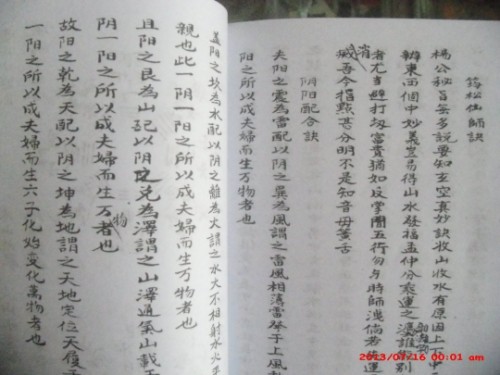 筠松仙師訣
楊公秘旨無多說要知玄空真妙訣收山收水有原因上下中
辦東西個中妙義豈易得山水發福孟仲分乘運之湲誰能別
者尤言避打劫富貴猶如反掌間五行勿與時師洩倘若失運
省
戚吾令指點甚分明不是知音毋萬舌
阴阳配合訣
夫阳之震為雷配以阴之巽為風謂之雷風相薄雷举于上風
阳之所以成夫婦而生万物者也
美阳之坎為水配以阴之離為火謂之水火不相射水火
親也此一阴一阳之所以成夫婦而生万物者也
且阳之艮為山配以阴之兑為澤謂之山澤通氣山載于
阴一阳之所以成夫婦而生万者也
物
故阳之乾為天配以阴之坤為地謂之天地定位天復于
一阳之所以成夫婦而生六子化始变化萬物者也
2023/07/16 00:01 am